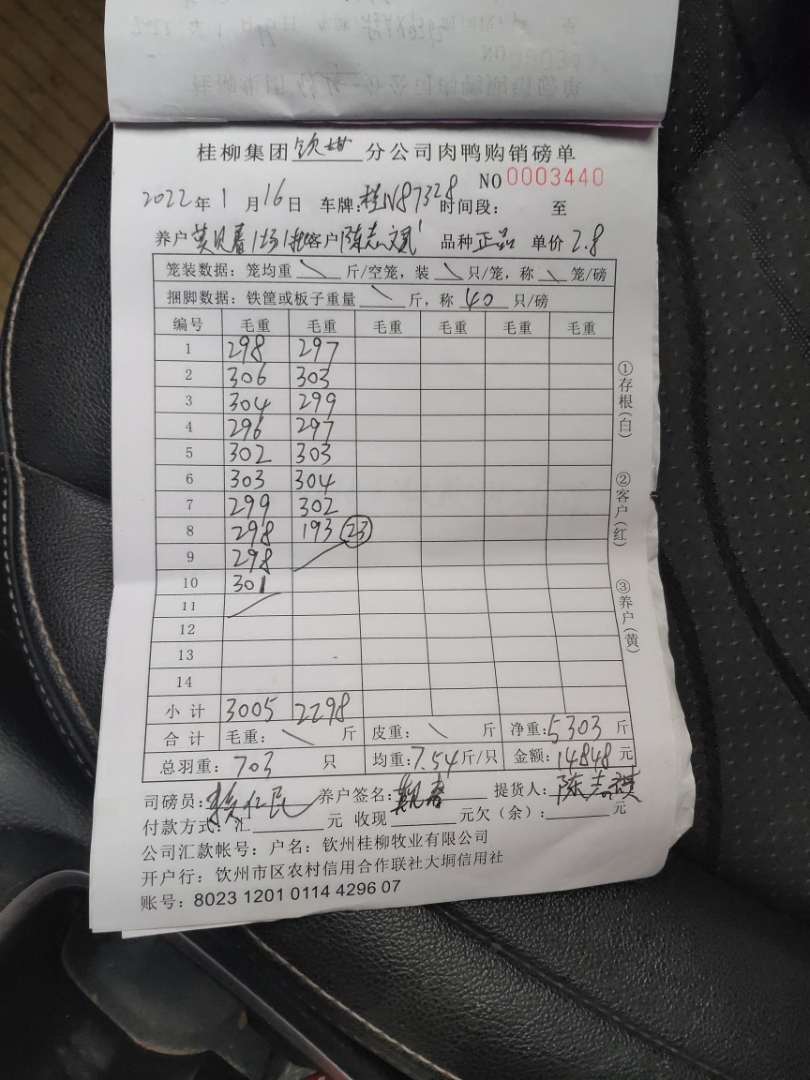 桂柳集团钦州分公司肉鸭购销磅单
NO 0003440
2022年1月16日 车牌:桂N87328 时间段: 至
养户 莫贝春1场1批 客户 陈志斌 品种 正品 单价 2.8
笼装数据: 笼均重 \ 斤/空笼, 装 \ 只/笼, 称 \ 笼/磅
捆脚数据: 铁筐或板子重量 \ 斤, 称 40 只/磅
编号 毛重 毛重 毛重 毛重 毛重 毛重
1 298 297
2 306 303
3 304 299
4 296 297
5 302 303
6 303 304
7 299 302
8 298 193 (23)
9 298
10 301
11
12
13
14
小计 3005 2298
合计 毛重: \ 斤 皮重: \ 斤 净重: 5303 斤
总羽重: 703 只 均重: 7.54 斤/只 金额: 14848 元
司磅员: 养户签名: 提货人:
付款方式: 汇 元 收现 元欠(余): 元
公司汇款帐号: 户名: 钦州桂柳牧业有限公司
开户行: 钦州市区农村信用合作联社大垌信用社
账号: 8023 1201 0114 4296 07
①存根(白)
②客户(红)
③养户(黄)